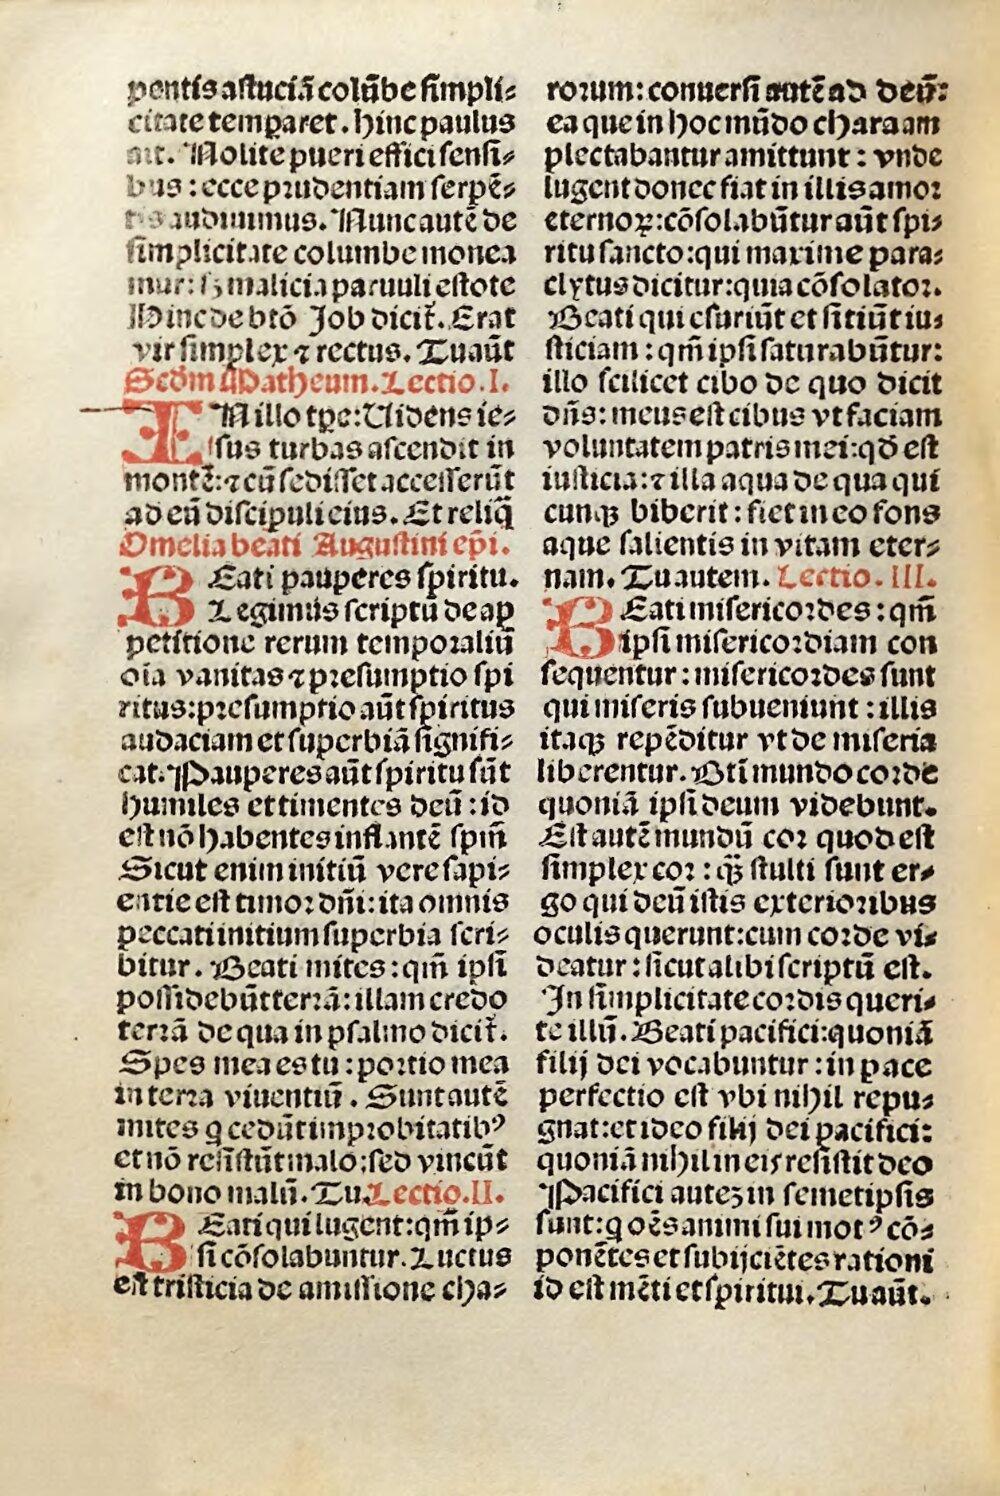 pentis astuciā colūbe simpli⸗
citate temparet. hinc paulus
ait. Nolite pueri effici sensi⸗
bus: ecce prudentiam serpē⸗
tis audiuimus. Nunc autē de
simplicitate columbe monea
mur: sꝫ malicia paruuli estote
Hinc de btō Job dicit᷑. Erat
vir simplex ⁊ rectus. Tu aūt
Scdm̄ Matheum. Lectio. I.
IN illo tpe: Uidens ie⸗
sus turbas ascendit in
montē: ⁊ cū sedisset accesserūt
ad eū discipuli eius. Et reliq̄
Omelia beati Augustini ep̄i.
BEati pauperes spiritu.
Legimus scriptū de ap
petitione rerum temporaliū
oīa vanitas ⁊ presumptio spi
ritus: presumptio aūt spiritus
audaciam et superbiā signifi⸗
cat. Pauperes aūt spiritu sūt
humiles et timentes deū: id
est nō habentes inflantē spm̄
Sicut enim initiū vere sapi⸗
entie est timor dn̄i: ita omnis
peccati initium superbia scri⸗
bitur. Beati mites: qm̄ ipsi
possidebūt terrā: illam credo
terrā de qua in psalmo dicit᷑.
Spes mea es tu: portio mea
in terra viuentiū. Sunt autē
mites q cedūt improbitatibꝰ
et nō resistūt malo: sed vincūt
in bono malū. Tu. Lectio. II.
BEati qui lugent: qm̄ ip⸗
si cōsolabuntur. Luctus
est tristicia de amissione cha⸗
rorum: conuersi autē ad deū:
ea que in hoc mūdo chara am
plectabantur amittunt: vnde
lugent donec fiat in illis amor
eternoꝝ: cōsolabūtur aūt spi⸗
ritu sancto: qui maxime para⸗
clytus dicitur: quia cōsolator.
Beati qui esuriūt et sitiūt iu⸗
sticiam: qm̄ ipsi saturabūtur:
illo scilicet cibo de quo dicit
dn̄s: meus est cibus vt faciam
voluntatem patris mei: qd̄ est
iusticia: ⁊ illa aqua de qua qui
cunqꝫ biberit: fiet in eo fons
aque salientis in vitam eter⸗
nam. Tu autem. Lectio. III.
BEati misericordes: qm̄
ipsi misericordiam con
sequentur: misericordes sunt
qui miseris subueniunt: illis
itaqꝫ repēditur vt de miseria
liberentur. Bt̄i mundo corde
quoniā ipsi deum videbunt.
Est autē mundū cor quod est
simplex cor: qꝫ̄ stulti sunt er⸗
go qui deū istis exterioribus
oculis querunt: cum corde vi⸗
deatur: sicut alibi scriptū est.
In simplicitate cordis queri⸗
te illū. Beati pacifici: quoniā
filij dei vocabuntur: in pace
perfectio est vbi nihil repu⸗
gnat: et ideo filij dei pacifici:
quoniā nihil in eis resistit deo
Pacifici auteꝫ in semetipsis
sunt: q oēs animi sui motꝰ cō⸗
ponētes et subijciētes rationi
id est mēti et spiritui. Tu aūt.